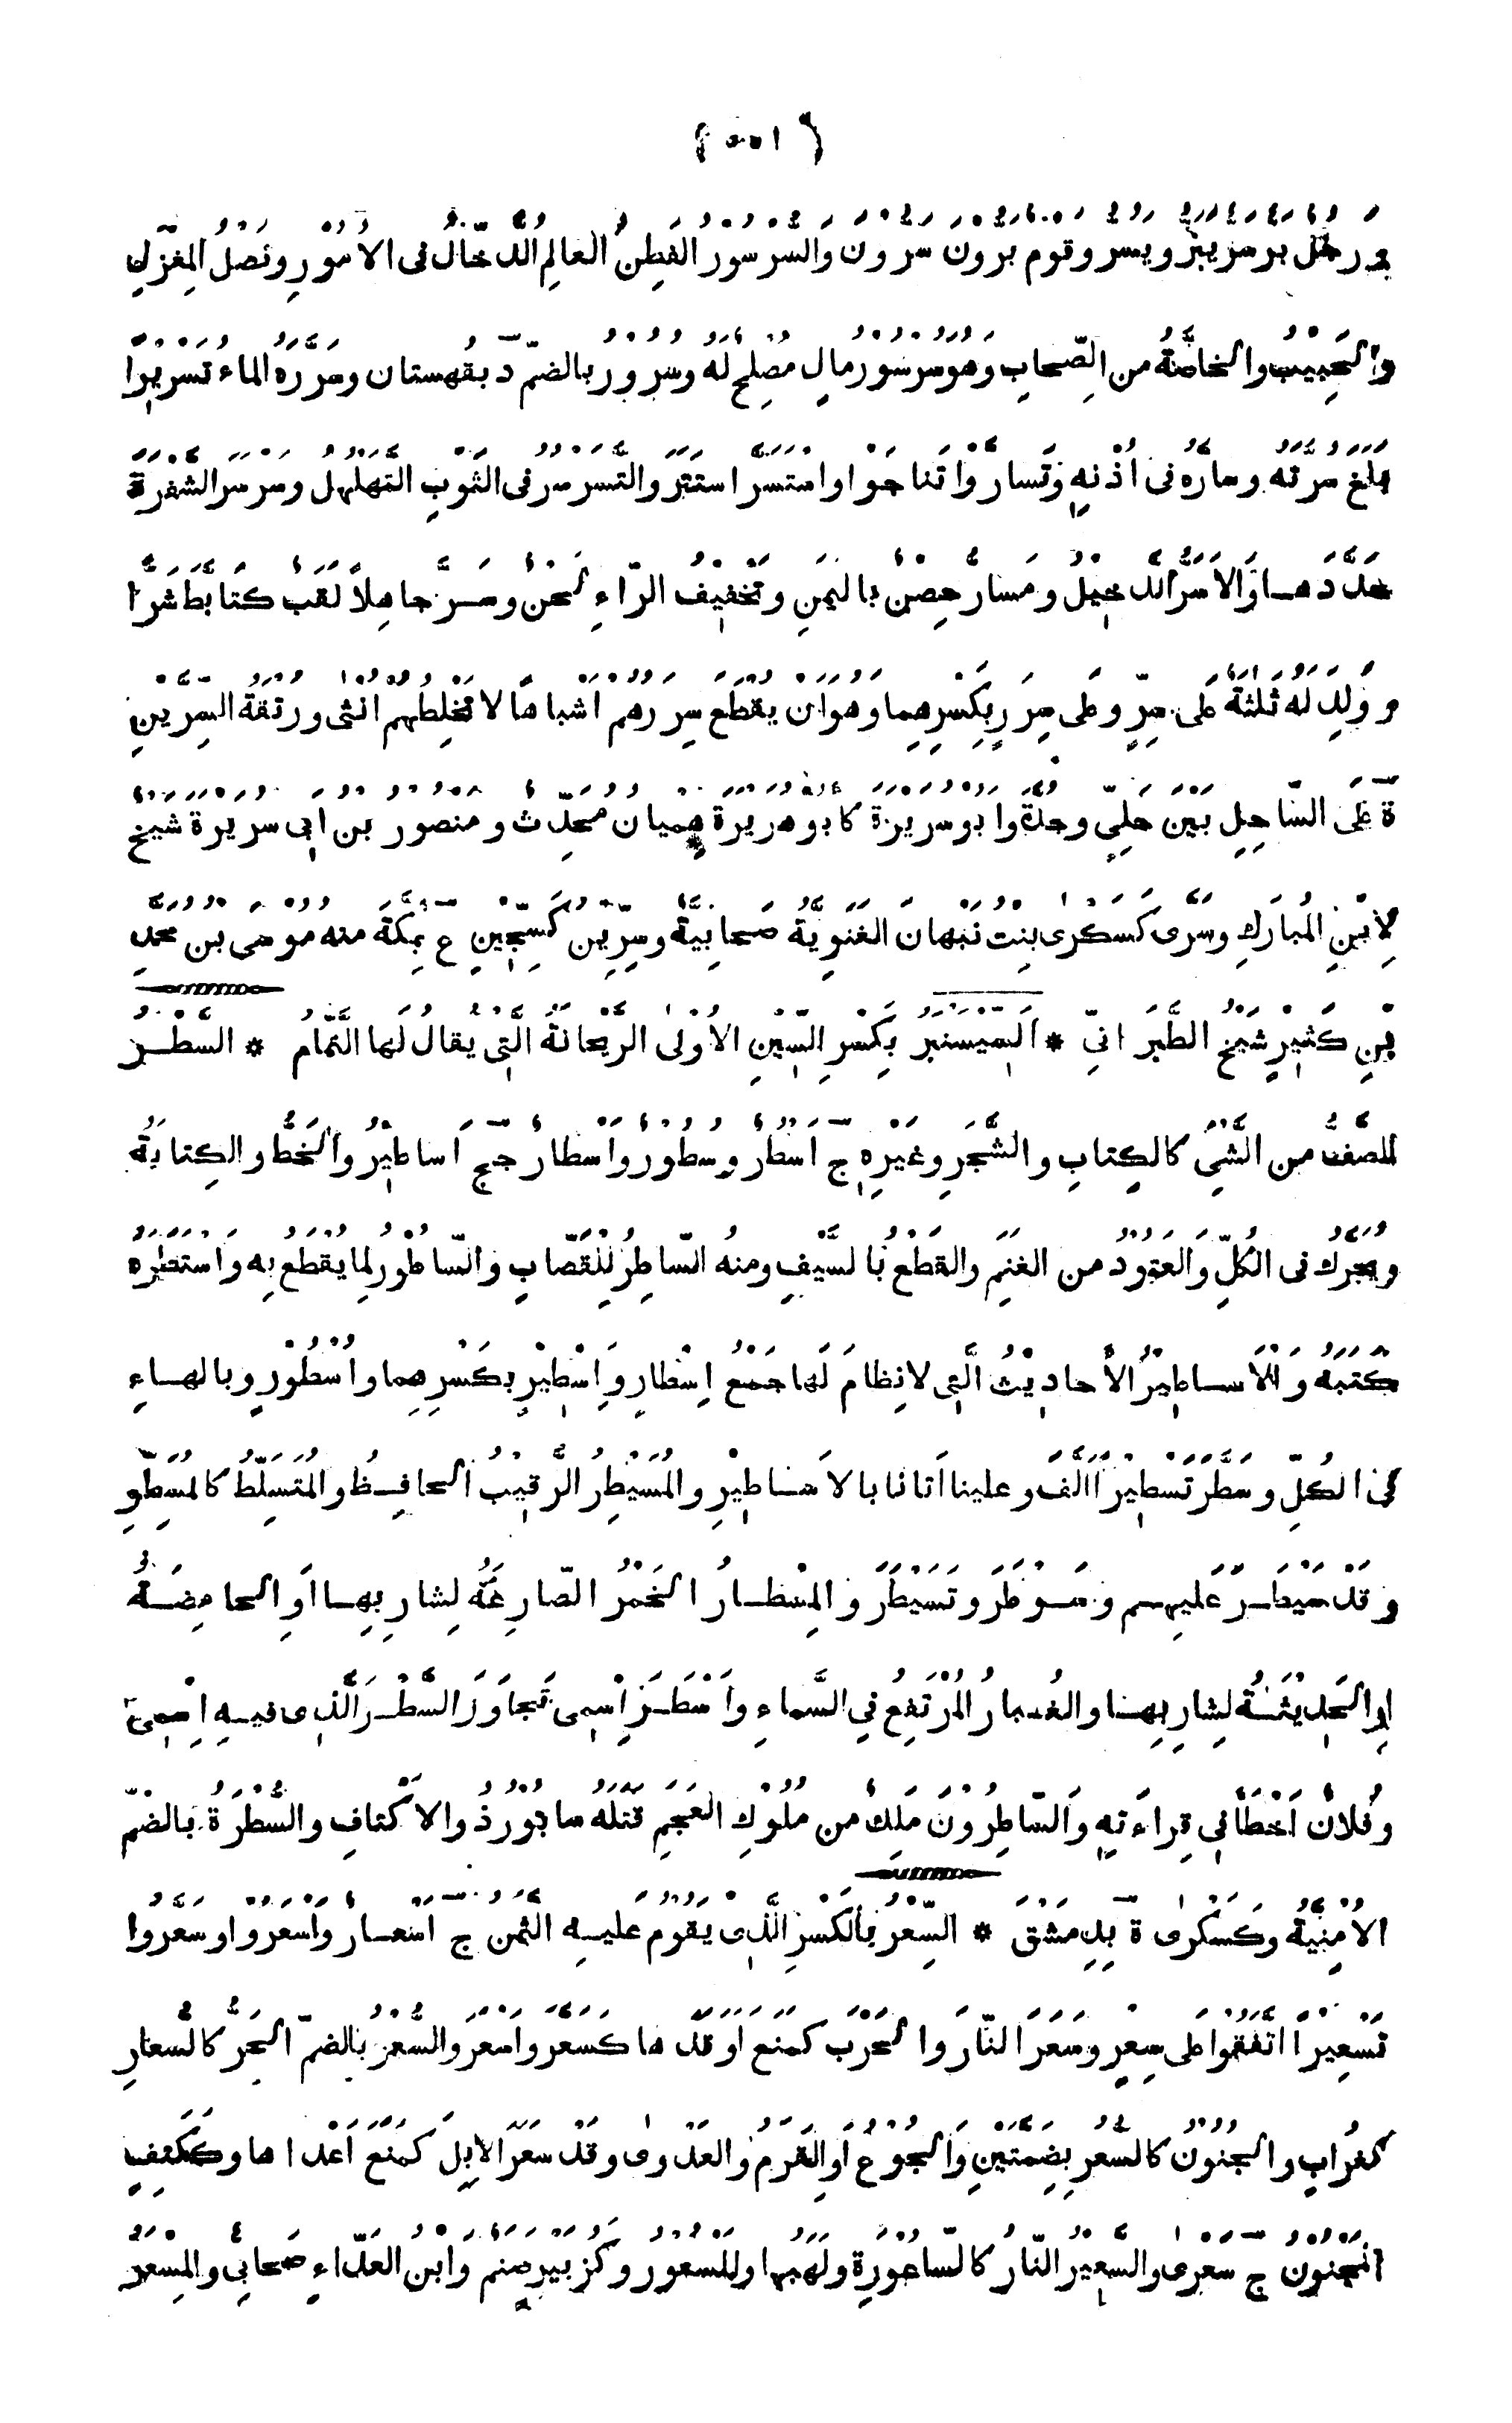 { ٥٥١ }
و رجل بر سر يبر ويسر وقوم برون سرون والسرسور الفطن العالم الدخال فى الامور ونصل المغزل
والحبيب والخاصة من الصحاب وهو سرسور مال مصلح له وسرور بالضم د بقهستان وسرره الماء تسريرا
بلغ سرته وساره فى اذنه وتساروا تناجوا واستسر استتر والتسرسر فى الثوب التهلهل وسرسر الشفرة
حددها والاسر الدخيل ومسار حصن باليمن وتخفيف الراء لحن وسر جاهلا لقب كتابط شرا
وولد له ثلثة على سر وعلى سرر بكسرهما وهو ان يقطع سررهم اشباها لا تخلطهم انثى ورتقة السرين
ة على الساحل بين حلى وجدة وابو سريرة كابو هريرة هميان محدث ومنصور بن ابى سريرة شيخ
لابن المبارك وسرى كسكرى بنت نبهان الغنوية صحابية وسرين كسجين ع بمكة منه موسى بن محمد
بن كثير شيخ الطبرانى * السيسنبر بكسر السين الاولى الريحانة التى يقال لها النمام * السطر
الصف من الشئ كالكتاب والشجر وغيره ج اسطر وسطور واسطار جج اساطير والخط والكتابة
ويحرك فى الكل والعتود من الغنم والقطع بالسيف ومنه الساطر للقصاب والساطور لما يقطع به واستطره
كتبه والاساطير الاحاديث التى لا نظام لها جمع اسطار واسطير بكسرهما واسطور وبالهاء
فى الكل وسطر تسطيرا الف وعلينا اتانا بالاساطير والمسيطر الرقيب الحافظ والمتسلط كالمسطر
وقد سيطر عليهم وسوطر وتسيطر والمسطار الخمر الصارعة لشاربها او الحامضة
او الحديثة لشاربها والغبار المرتفع فى السماء واسطر اسمى تجاوز السطر الذى فيه اسمى
وفلان اخطا فى قراءته والساطرون ملك من ملوك العجم قتله سابور ذو الاكتاف والسطرة بالضم
الامنية وكسكرى ة بدمشق * السعر بالكسر الذى يقوم عليه الثمن ج اسعار واسعروا وسعروا
تسعيرا اتفقوا على سعر وسعر النار والحرب كمنع اوقدها كسعر واسعر والسعر بالضم الحر كالسعار
كغراب والجنون كالسعر بضمتين والجوع او القرم والعدوى وقد سعر الابل كمنع اعداها وككتف
المجنون ج سعرى والسعير النار كالساعورة ولهبها والمسعور وكزبير صنم وابن العداء صحابى والمسعر